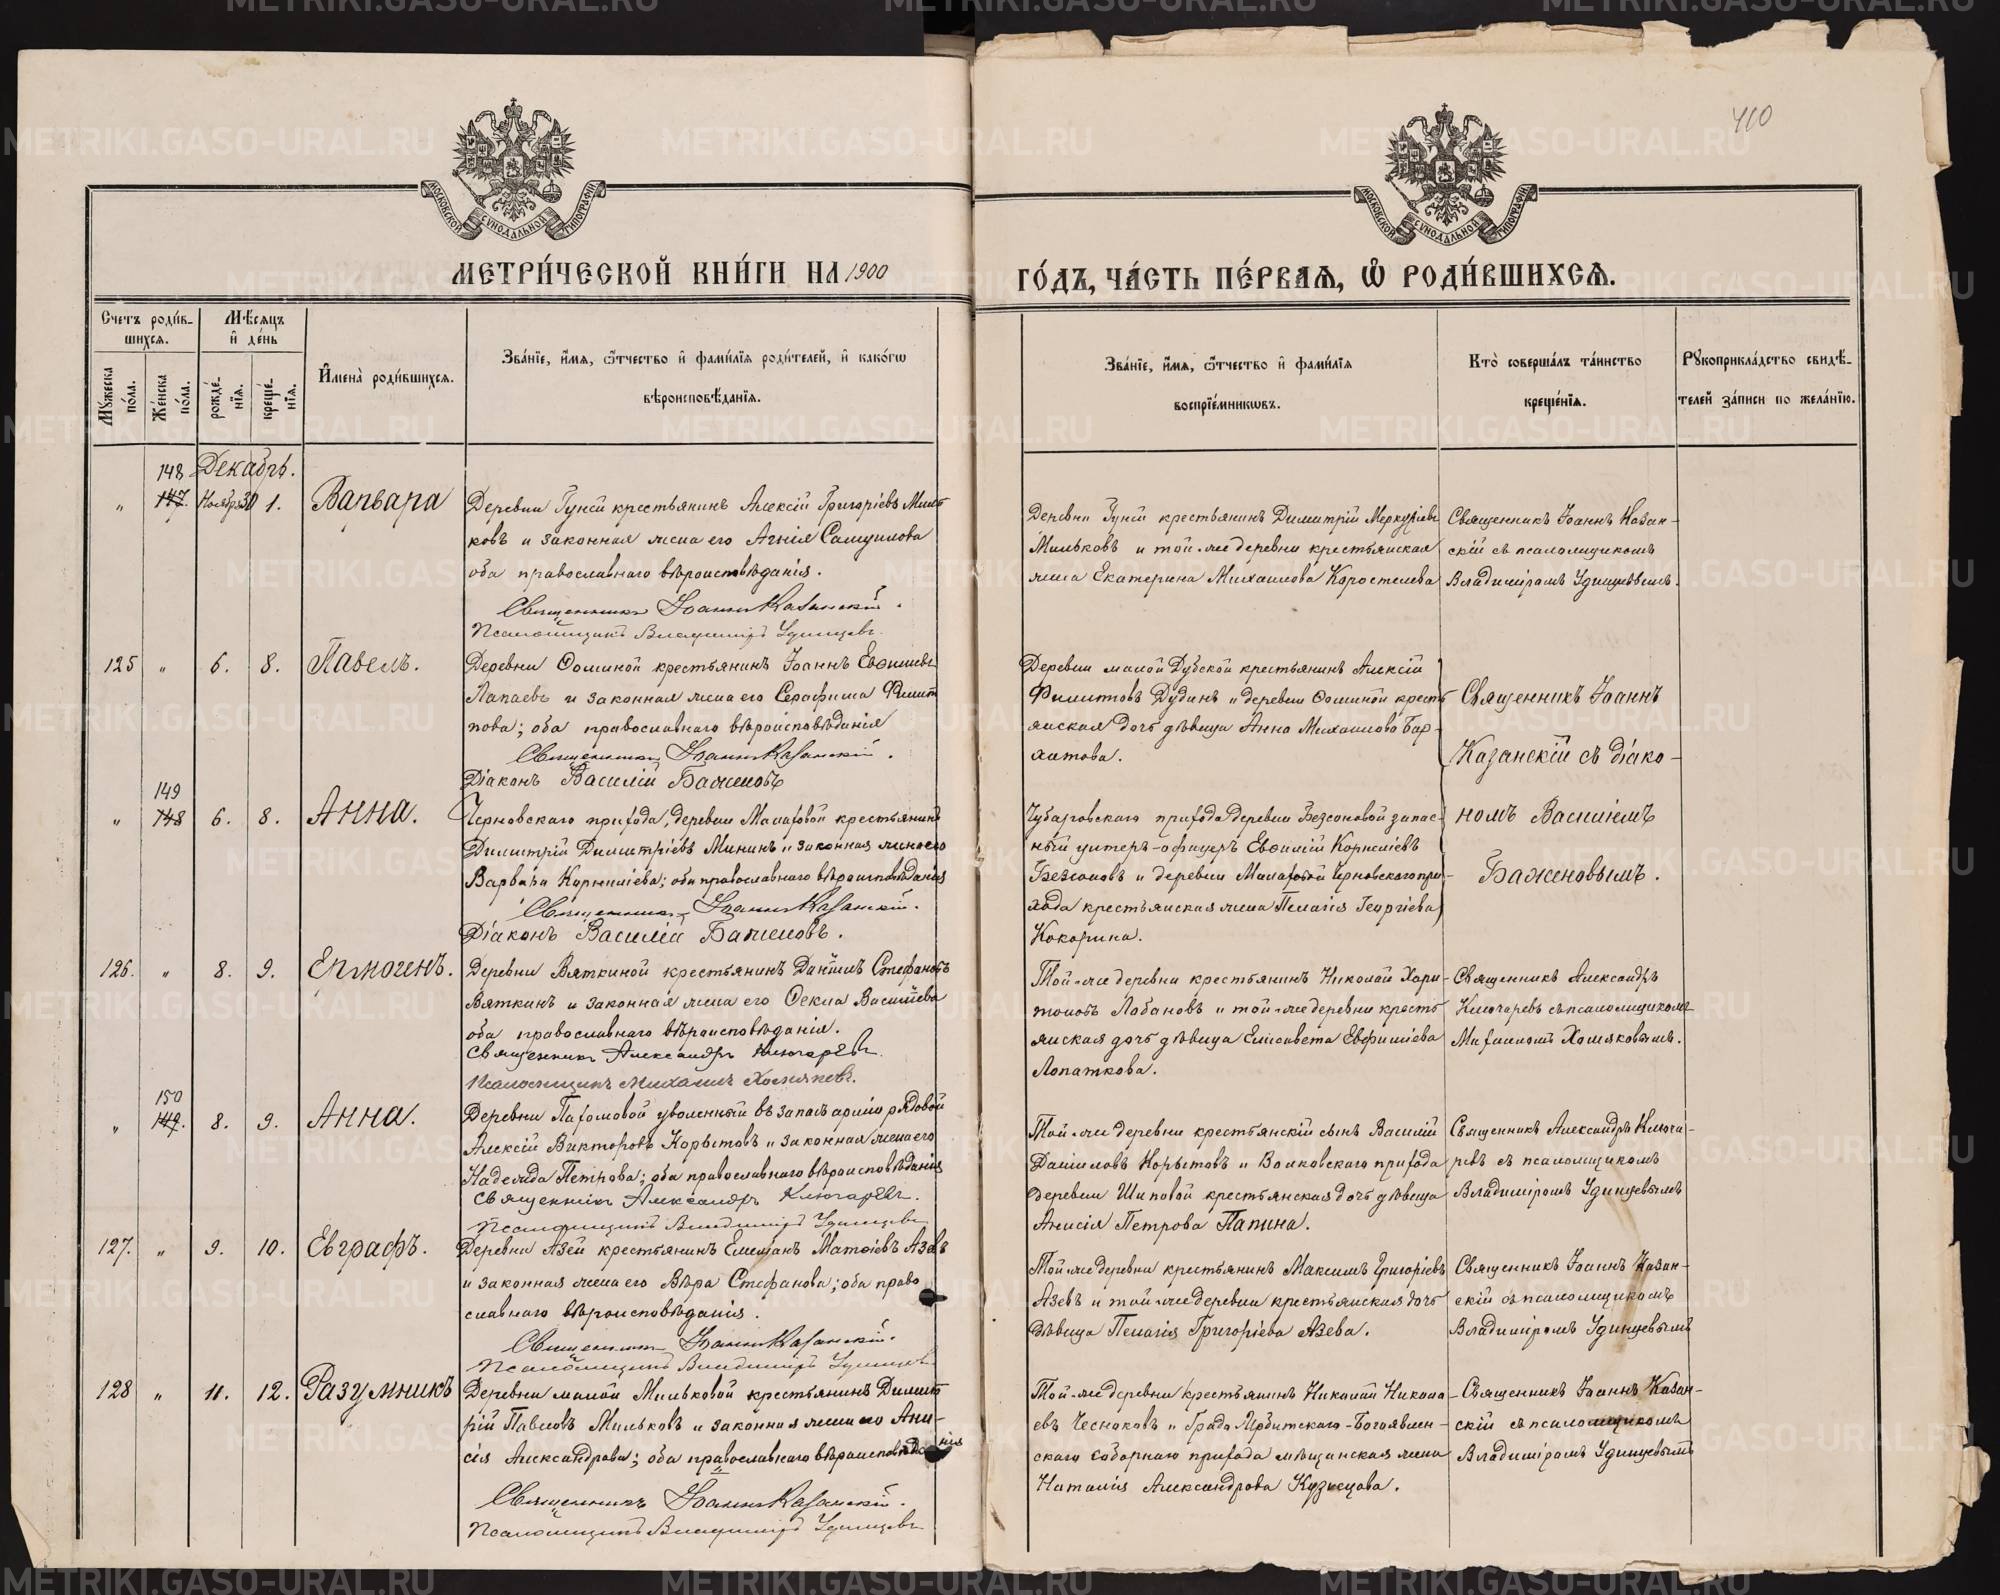 410
МОСКОВСКОЙ СѴНОДАЛЬНОЙ ТИПОГРАФІИ
МОСКОВСКОЙ СѴНОДАЛЬНОЙ ТИПОГРАФІИ
МЕТРИ́ЧЕСКОЙ КНИ́ГИ НА 1900
ГО́ДЪ, ЧА́СТЬ ПЕ́РВАЯ, Ѡ҆ РОДИ́ВШИХСЯ.
Счетъ роди́в-
шихся.
Мѣ́сяцъ
и҆ де́нь
Му́жеска
по́ла.
Же́нска
по́ла.
рожде́-
нїя.
креще́-
нїя.
И҆мена̀ роди́вшихся.
Зва́нїе, и҆́мя, ѻ҆́тчество и҆ фами́лїя роди́телей, и҆ како́гѡ
вѣроисповѣ́данїя.
Зва́нїе, и҆́мя, ѻ҆́тчество и҆ фами́лїя
воспрїе́мникѡвъ.
Кто̀ соверша́лъ та́инство
креще́нїя.
Рꙋкоприкла́дство свидѣ́-
телей за́писи по жела́нїю.
148 Декабрь.
" 147. Ноября 30 1. Варвара
Деревни Гуней крестьянинъ Алексій Григоріевъ Миль-
ковъ и законная жена его Агнія Самуилова
оба православнаго вѣроисповѣданія.
Священникъ Іоаннъ Казанскій.
Псаломщикъ Владиміръ Удинцевъ.
Деревни Гуней крестьянинъ Димитрій Меркурьевъ
Мильковъ и той-же деревни крестьянская
жена Екатерина Михаилова Коростелева
Священникъ Іоаннъ Казан-
скій съ псаломщикомъ
Владиміромъ Удинцевымъ.
125 " 6. 8. Павелъ.
Деревни Ѳоминой крестьянинъ Іоаннъ Евѳиміевъ
Лапаевъ и законная жена его Серафима Филип-
пова; оба православнаго вѣроисповѣданія
Священникъ Іоаннъ Казанскій.
Діаконъ Василій Баженовъ
Деревни малой Дубской крестьянинъ Алексій
Филиповъ Дудинъ и деревни Ѳоминой кресть-
янская дочь дѣвица Анна Михаилова Бар-
хатова.
Священникъ Іоаннъ
Казанскій съ діако-
номъ Василіемъ
Баженовымъ.
149
" 148 6. 8. Анна.
Черновскаго прихода, деревни Малаховой крестьянинъ
Димитрій Димитріевъ Мининъ и законная жена его
Варвара Корниліева; оба православнаго вѣроисповѣданія
Священникъ Іоаннъ Казанскій.
Діаконъ Василій Баженовъ.
Чубаровскаго прихода деревни Безсоновой запас-
ный унтеръ-офицеръ Евѳимій Корниліевъ
Безсоновъ и деревни Малаховой Черновскаго при-
хода крестьянская жена Пелагія Георгіева
Кокорина.
126. " 8. 9. Ермогенъ.
Деревни Вяткиной крестьянинъ Даніилъ Стефановъ
Вяткинъ и законная жена его Ѳекла Васильева
оба православнаго вѣроисповѣданія.
Священникъ Александръ Ключаревъ.
Псаломщикъ Михаилъ Хомяковъ.
Той-же деревни крестьянинъ Николай Хари-
тоновъ Лобановъ и той-же деревни кресть-
янская дочь дѣвица Елисавета Евфиміева
Лопаткова.
Священникъ Александръ
Ключаревъ съ псаломщикомъ
Михаиломъ Хомяковымъ.
150
" 149. 8. 9. Анна.
Деревни Пахомовой уволенный въ запасъ арміи рядовой
Алексій Викторовъ Корытовъ и законная жена его
Надежда Петрова; оба православнаго вѣроисповѣданія
Священникъ Александръ Ключаревъ.
Псаломщикъ Владиміръ Удинцевъ
Той-же деревни крестьянскій сынъ Василій
Даніиловъ Корытовъ и Волковскаго прихода
деревни Шиповой крестьянская дочь дѣвица
Анисія Петрова Папина.
Священникъ Александръ Ключа-
ревъ съ псаломщикомъ
Владиміромъ Удинцевымъ
127. " 9. 10. Евграфъ.
Деревни Азей крестьянинъ Емельянъ Матѳіевъ Азевъ
и законная жена его Вѣра Стефанова; оба право-
славнаго вѣроисповѣданія.
Священникъ Іоаннъ Казанскій.
Псаломщикъ Владиміръ Удинцевъ
Той-же деревни крестьянинъ Максимъ Григоріевъ
Азевъ и той-же деревни крестьянская дочь
дѣвица Пелагія Григоріева Азева.
Священникъ Іоаннъ Казан-
скій съ псаломщикомъ
Владиміромъ Удинцевымъ
128 " 11. 12. Разумникъ
Деревни малой Мильковой крестьянинъ Димит-
рій Павловъ Мильковъ и законная жена его Ани-
сія Александрова; оба православнаго вѣроисповѣданія
Священникъ Іоаннъ Казанскій.
Псаломщикъ Владиміръ Удинцевъ
Той-же деревни крестьянинъ Николай Никола-
евъ Чесноковъ и Града Ирбитскаго-Богоявлен-
скаго соборнаго прихода мѣщанская жена
Наталія Александрова Кузнецова.
Священникъ Іоаннъ Казан-
скій съ псаломщикомъ
Владиміромъ Удинцевымъ
METRIKI.GASO-URAL.RU